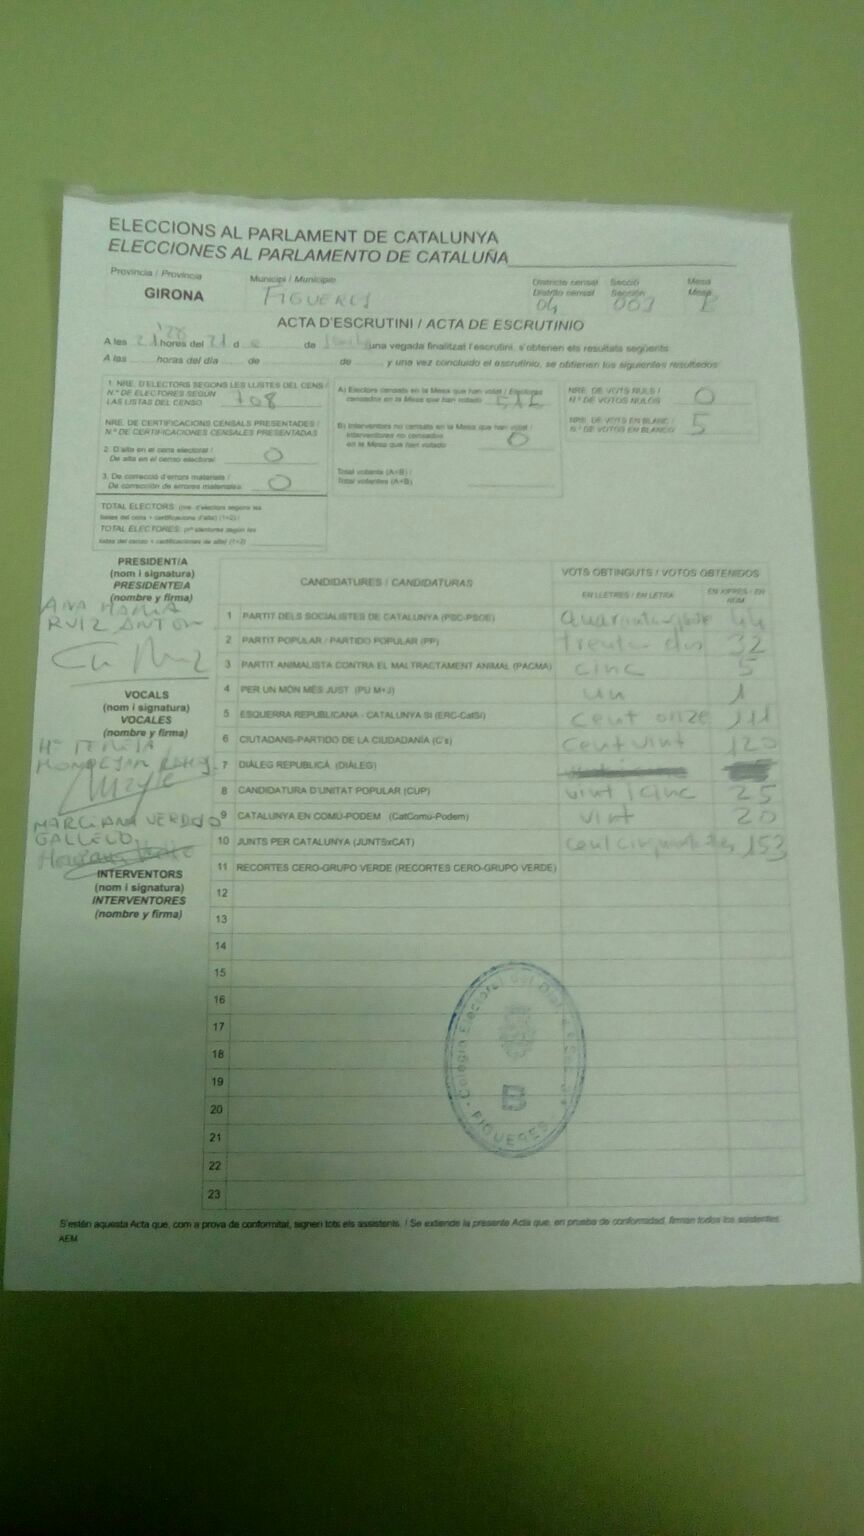 ELECCIONS AL PARLAMENT DE CATALUNYA
ELECCIONES AL PARLAMENTO DE CATALUÑA
Provincia / Provincia Municipi / Municipio Districte censal Secció Mesa
Distrito censal Sección Mesa
GIRONA FIGUERES 04 003 B
ACTA D'ESCRUTINI / ACTA DE ESCRUTINIO
A les hores del 21 d de una vegada finalitzat l'escrutini, s'obtenen els resultats següents
A las horas del día de de y una vez concluido el escrutinio, se obtienen los siguientes resultados
1. NRE. D'ELECTORS SEGONS LES LLISTES DEL CENS /
N.º DE ELECTORES SEGÚN
LAS LISTAS DEL CENSO 708
NRE. DE CERTIFICACIONS CENSALS PRESENTADES /
N.º DE CERTIFICACIONES CENSALES PRESENTADAS
2. D'alta en el cens electoral /
De alta en el censo electoral 0
3. De correcció d'errors materials /
De corrección de errores materiales 0
TOTAL ELECTORS: (nre. d'electors segons les
llistes del cens + certificacions d'alta) (1+2) /
TOTAL ELECTORES: (nº electores según les
listas del censo + certificaciones de alta) (1+2)
A) Electors censats en la Mesa que han votat / Electores
censados en la Mesa que han votado
B) Interventors no censats en la Mesa que han votat /
Interventores no censados
en la Mesa que han votado 0
Total votants (A+B) /
Total votantes (A+B)
NRE. DE VOTS NULS /
N.º DE VOTOS NULOS 0
NRE. DE VOTS EN BLANC /
N.º DE VOTOS EN BLANCO 5
PRESIDENT/A
(nom i signatura)
PRESIDENTE/A
(nombre y firma)
ANA MARIA
RUIZ ANTON
VOCALS
(nom i signatura)
VOCALES
(nombre y firma)
Mª TERESA
MARCIANA VERDEJO
GALLEGO
INTERVENTORS
(nom i signatura)
INTERVENTORES
(nombre y firma)
CANDIDATURES / CANDIDATURAS VOTS OBTINGUTS / VOTOS OBTENIDOS
EN LLETRES / EN LETRA EN XIFRES / EN NÚM.
1 PARTIT DELS SOCIALISTES DE CATALUNYA (PSC-PSOE) 44
2 PARTIT POPULAR / PARTIDO POPULAR (PP) trenta dos 32
3 PARTIT ANIMALISTA CONTRA EL MALTRACTAMENT ANIMAL (PACMA) cinc 5
4 PER UN MÓN MÉS JUST (PU M+J) un 1
5 ESQUERRA REPUBLICANA - CATALUNYA SÍ (ERC-CatSí) cent onze 111
6 CIUTADANS-PARTIDO DE LA CIUDADANÍA (C's) cent vint 120
7 DIÀLEG REPUBLICÀ (DIÀLEG)
8 CANDIDATURA D'UNITAT POPULAR (CUP) vint i cinc 25
9 CATALUNYA EN COMÚ-PODEM (CatComú-Podem) vint 20
10 JUNTS PER CATALUNYA (JUNTSxCAT) 153
11 RECORTES CERO-GRUPO VERDE (RECORTES CERO-GRUPO VERDE)
12
13
14
15
16
17
18
19
20
21
22
23
FIGUERES
S'estén aquesta Acta que, com a prova de conformitat, signen tots els assistents. / Se extiende la presente Acta que, en prueba de conformidad, firman todos los asistentes.
AEM